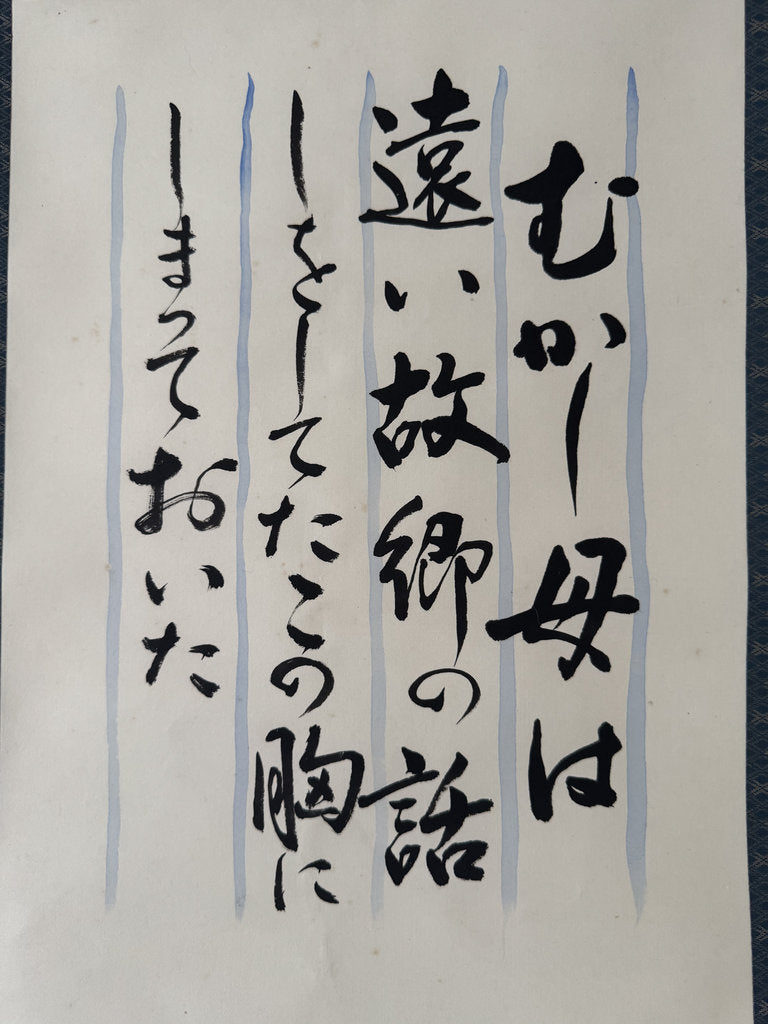 むかし母は
遠い故郷の話
しをしてたこの胸に
しまっておいた